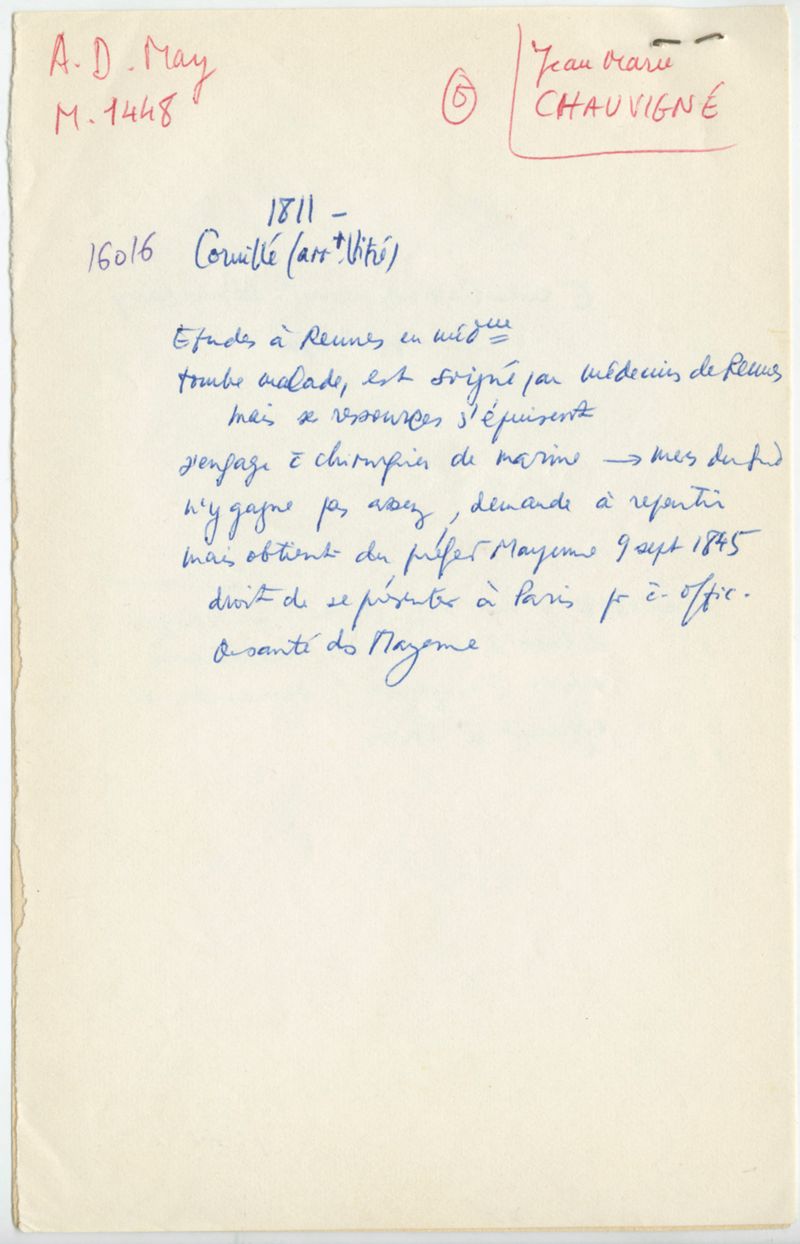 A.D. May
M. 1448
5
Jean Marie
CHAUVIGNÉ
1811 -
16016 Cornillé (arrt Vitré)
Etudes à Rennes en médecine
tombe malade, est soigné par médecins de Rennes
mais se ressources s'épuisent
s'engage c̄ chirurgien de marine → mers du sud
n'y gagne pas assez, demande à repartir
mais obtient du préfet Mayenne 9 sept 1845
droit de se présenter à Paris pr c̄ offic.
de santé ds Mayenne